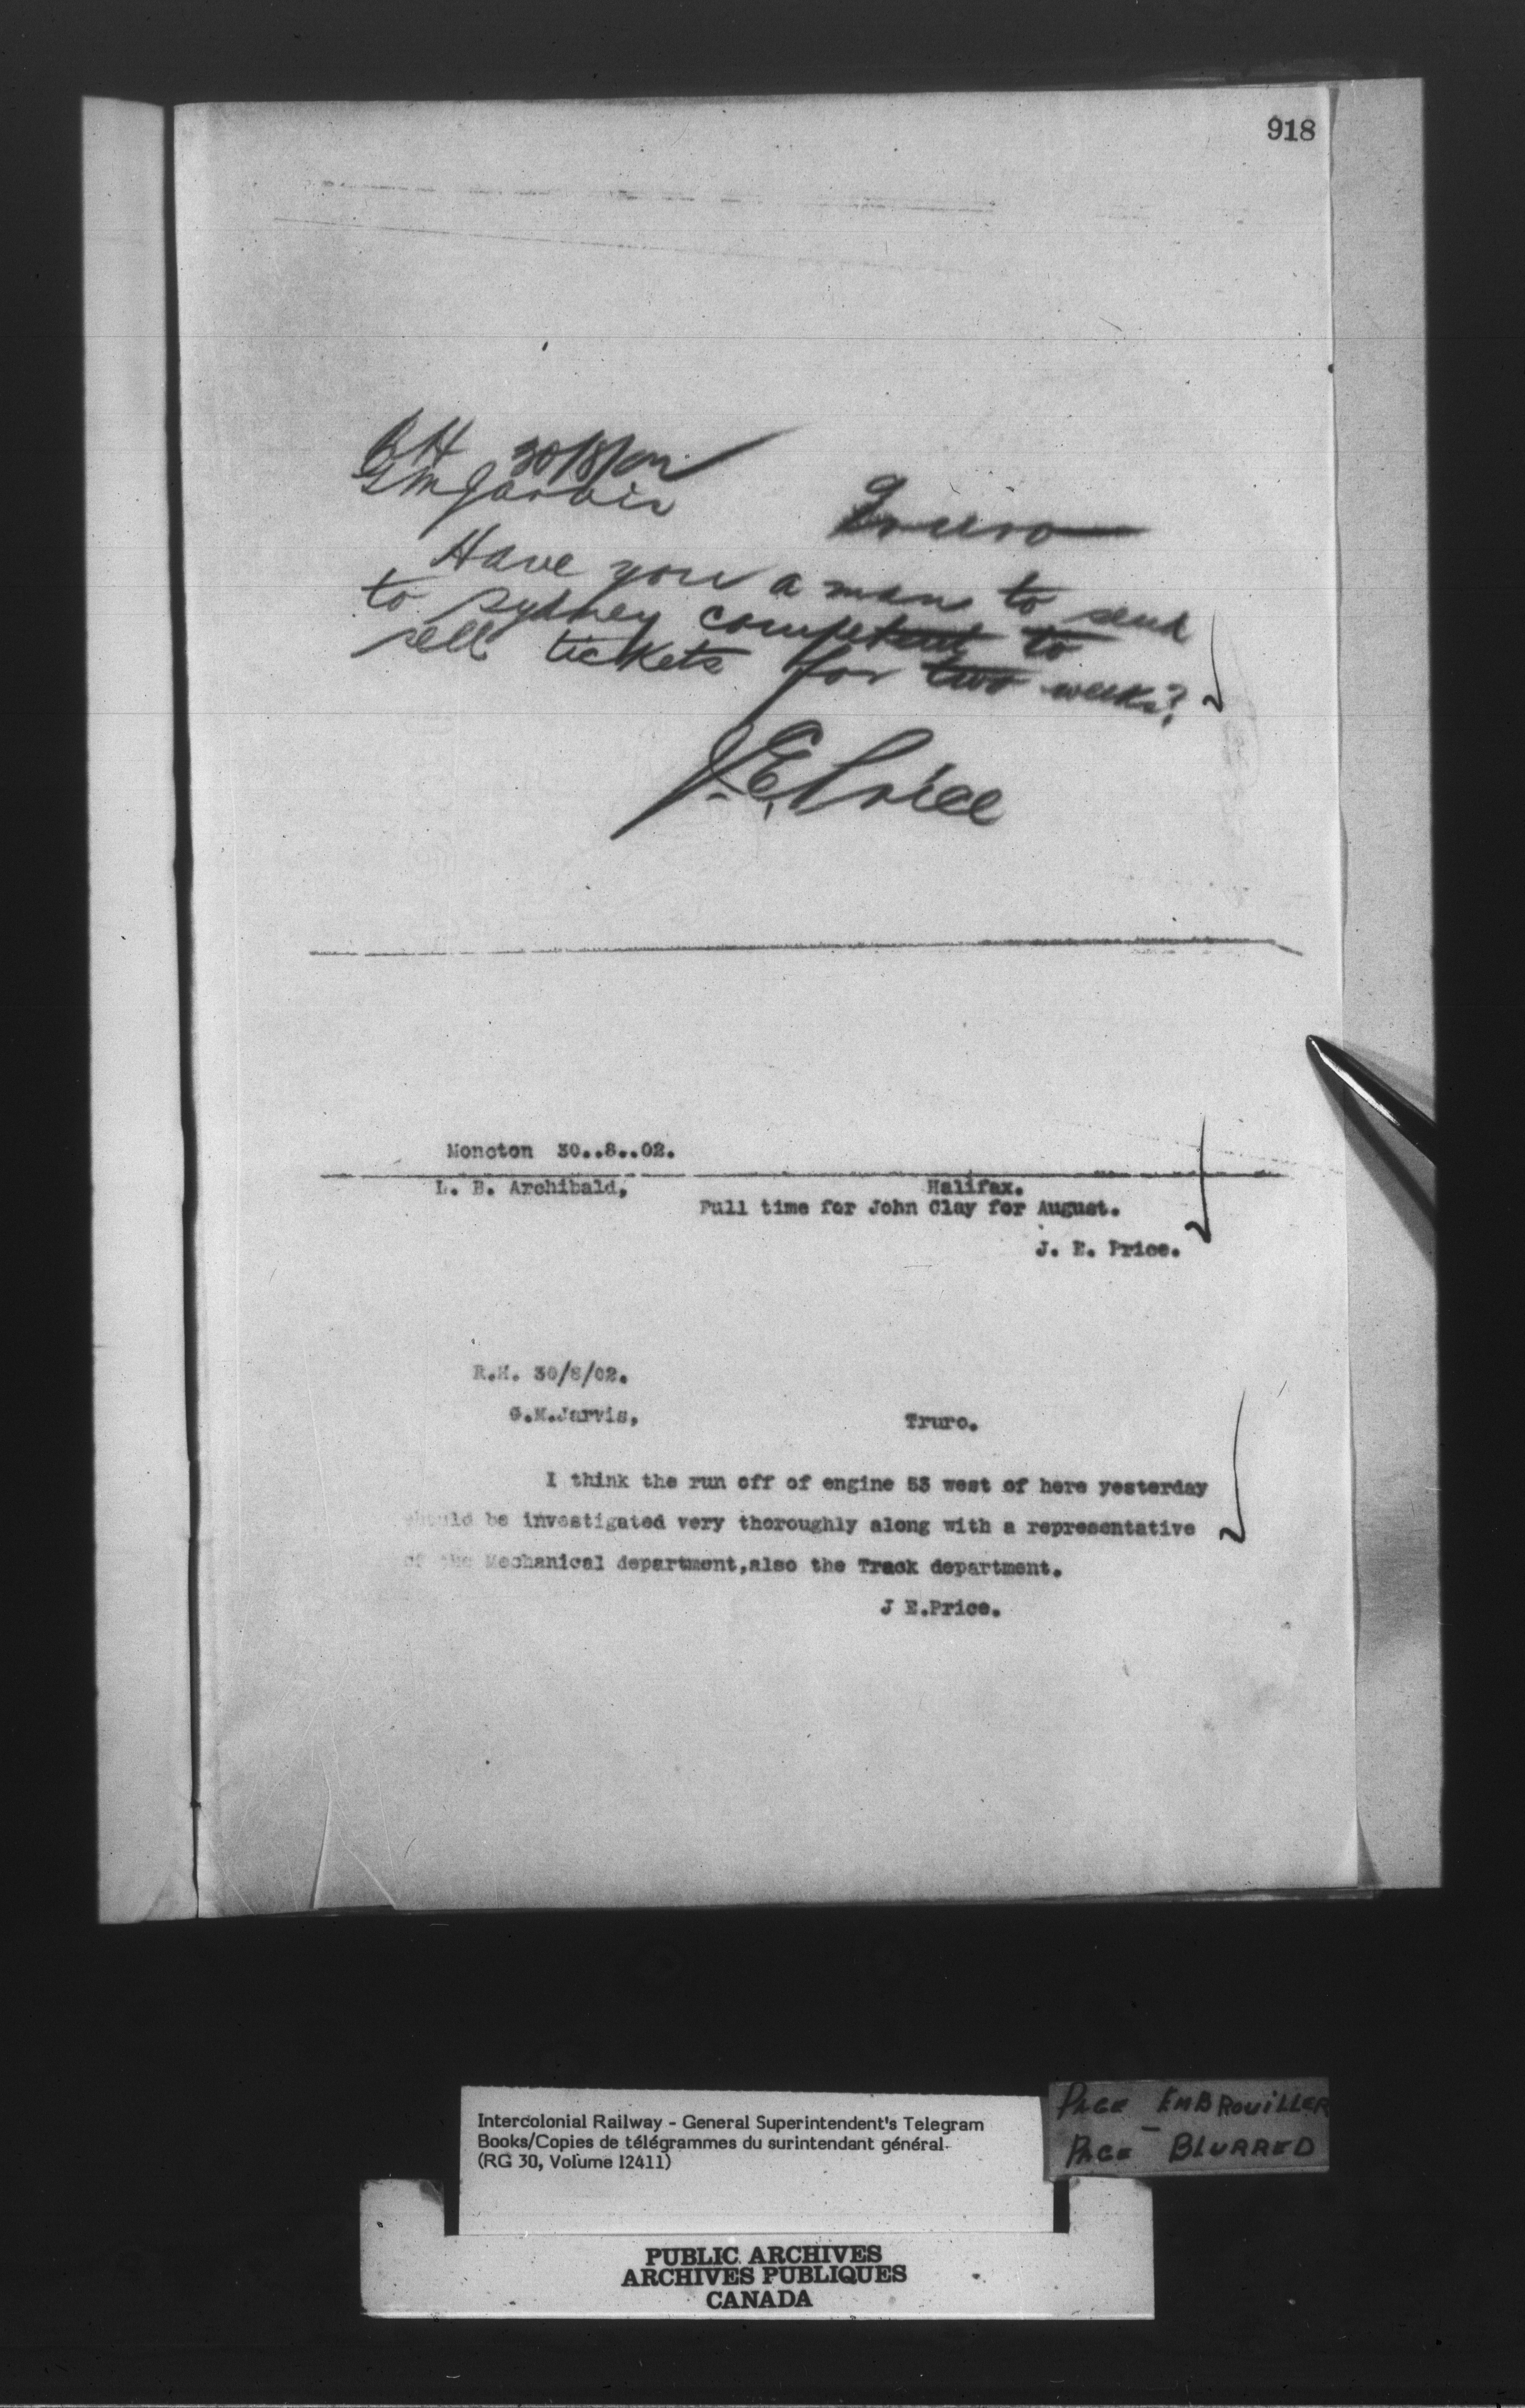 918
30/8/02
G M Jarvis
Truro
Have you a man to send
to Sydney competent to
sell tickets for two weeks?
J. E. Price
Moncton 30..8..02.
L. B. Archibald, Halifax.
Full time for John Clay for August.
J. E. Price.
R.H. 30/8/02.
G.M.Jarvis, Truro.
I think the run off of engine 53 west of here yesterday
should be investigated very thoroughly along with a representative
of the Mechanical department,also the Track department.
J E.Price.
Intercolonial Railway - General Superintendent's Telegram
Books/Copies de télégrammes du surintendant général
(RG 30, Volume 12411)
PAGE EMBROUILLER
-
PAGE BLURRED
PUBLIC ARCHIVES
ARCHIVES PUBLIQUES
CANADA